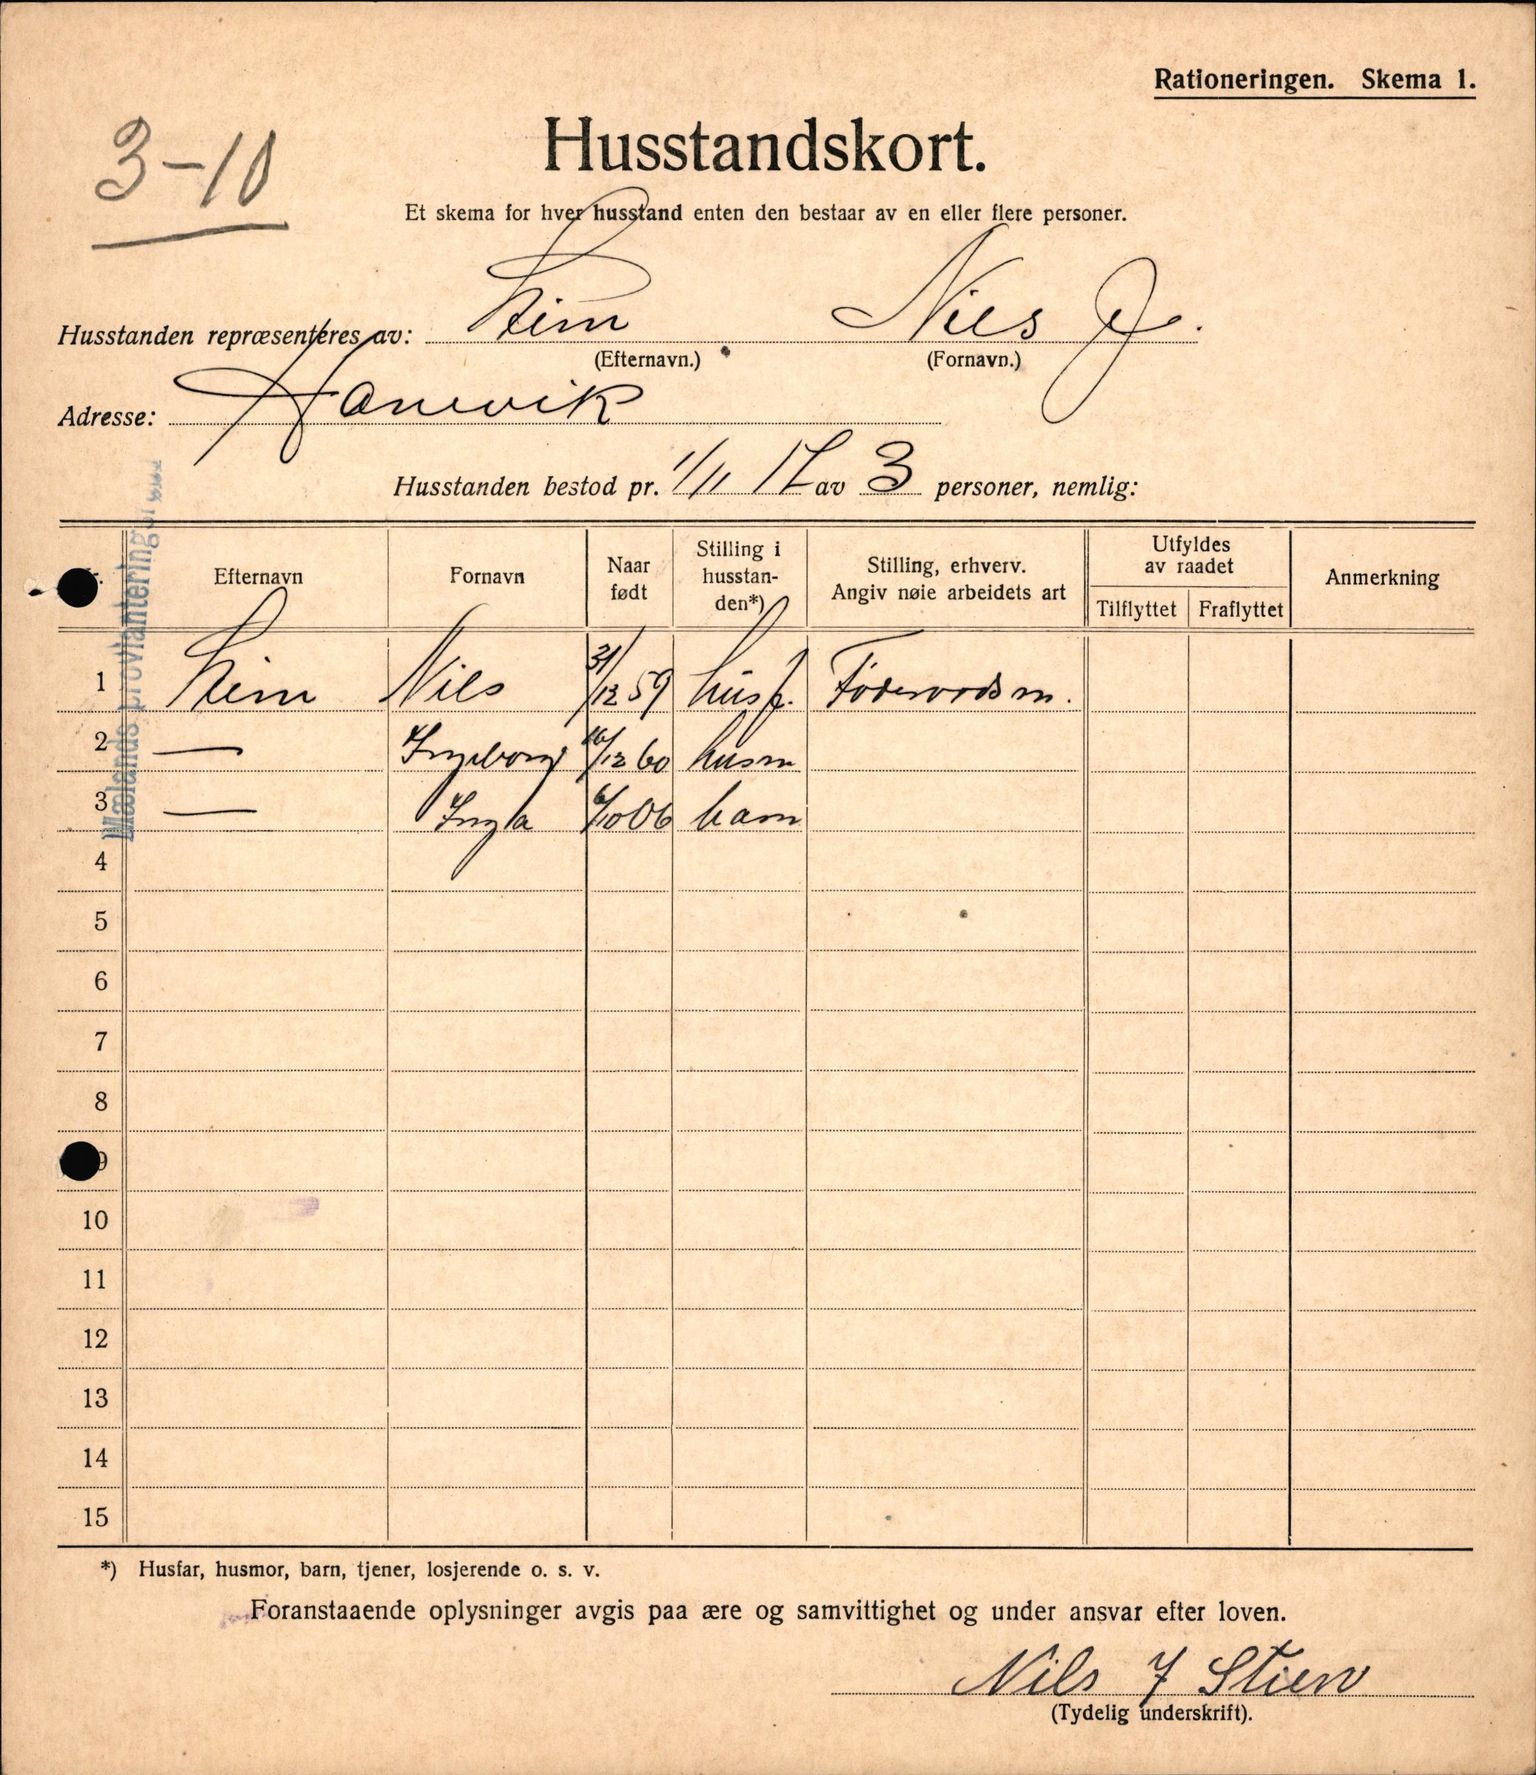 Rationeringen. Skema 1.
3-10
Husstandskort.
Et skema for hver husstand enten den bestaar av en eller flere personer.
Husstanden repræsenteres av: Stim Nils J.
(Efternavn.) (Fornavn.)
Adresse: Hanevik
Husstanden bestod pr. 1/11 17 av 3 personer, nemlig:
Efternavn Fornavn Naar født Stilling i husstan-den*) Stilling, erhverv. Angiv nøie arbeidets art Utfyldes av raadet Tilflyttet Fraflyttet Anmerkning
1 Stim Nils 31/12 59 husf. Føderaadsm.
2 — Ingeborg 16/12 60 husm
3 — Inga 6/10 06 barn
4
5
6
7
8
9
10
11
12
13
14
15
Mælands provianteringsraad
*) Husfar, husmor, barn, tjener, losjerende o. s. v.
Foranstaaende oplysninger avgis paa ære og samvittighet og under ansvar efter loven.
Nils J Stiem
(Tydelig underskrift).